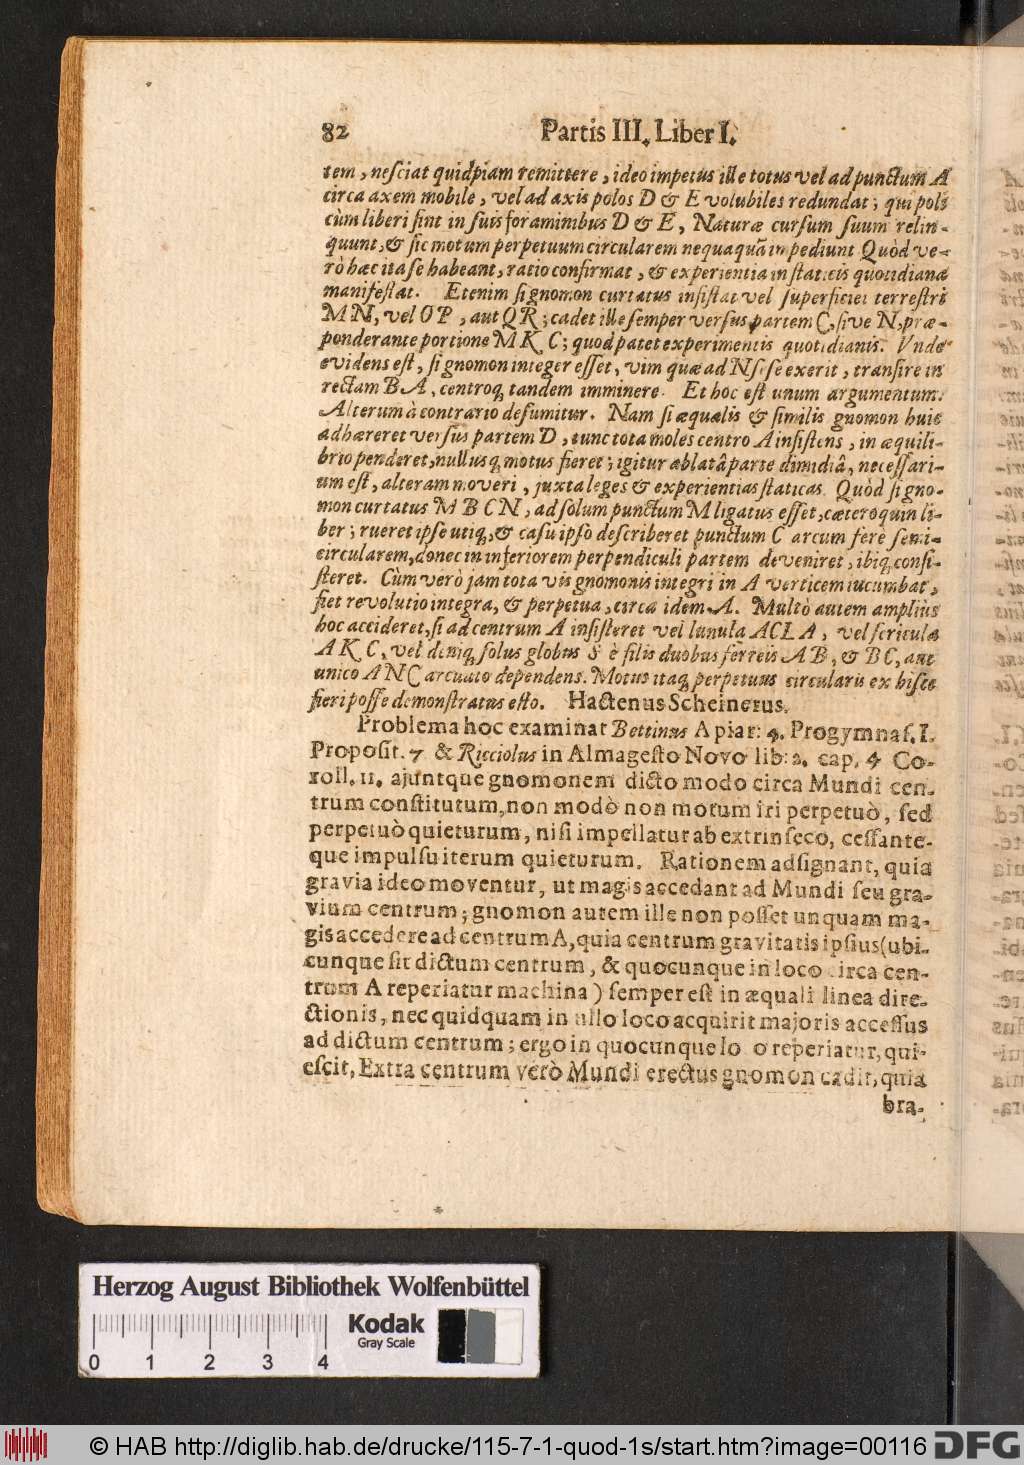 82 Partis III. Liber I.
tem, nesciat quidpiam remittere, ideo impetus ille totus vel ad punctum A
circa axem mobile, vel ad axis polos D & E volubiles redundat; qui poli
cùm liberi sint in suis foraminibus D & E, Naturæ cursum suum relin-
quunt, & sic motum perpetuum circularem nequaquã impediunt Quòd ve-
rò hæc ita se habeant, ratio confirmat, & experientia in staticis quotidiana
manifestat. Etenim si gnomon curtatus insistat vel superficiei terrestri
MN, vel OP, aut QR; cadet ille semper versus partem C, sive N, præ-
ponderante portione MKC; quod patet experimentis quotidianis. Unde
evidens est, si gnomon integer esset, vim quæ ad N sese exerit, transire in
rectam BA, centroq; tandem imminere. Et hoc est unum argumentum.
Alterum à contrario desumitur. Nam si æqualis & similis gnomon huic
adhæreret versus partem D, tunc tota moles centro A insistens, in æquili-
brio penderet, nullusq; motus fieret; igitur ablatâ parte dimidiâ, necessari-
um est, alteram moveri, juxta leges & experientias staticas. Quòd si gno-
mon curtatus MBCN, ad solum punctum M ligatus esset, cæteroquin li-
ber; rueret ipse utiq;, & casu ipso describeret punctum C arcum ferè semi-
circularem, donec in inferiorem perpendiculi partem deveniret, ibiq; consi-
steret. Cùm verò jam tota vis gnomonis integri in A verticem incumbat,
fiet revolutio integra, & perpetua, circa idem A. Multò autem ampliùs
hoc accideret, si ad centrum A insisteret vel lunula ACLA, vel sericula
AKC, vel deniq; solus globus S è filis duobus ferreis AB, & BC, aut
unico ANC arcuato dependens. Motus itaq; perpetuus circularis ex hisce
fieri posse demonstratus esto. Hactenus Scheinerus.
Problema hoc examinat Bettinus Apiar: 4. Progymnas. I.
Proposit. 7 & Ricciolus in Almagesto Novo lib: 2. cap. 4 Co-
roll. 11. ajuntque gnomonem dicto modo circa Mundi cen-
trum constitutum, non modò non motum iri perpetuò, sed
perpetuò quieturum, nisi impellatur ab extrinseco, cessante-
que impulsu iterum quieturum. Rationem adsignant, quia
gravia ideo moventur, ut magis accedant ad Mundi seu gra-
vium centrum; gnomon autem ille non posset unquam ma-
gis accedere ad centrum A, quia centrum gravitatis ipsius (ubi-
cunque sit dictum centrum, & quocunque in loco circa cen-
trum A reperiatur machina) semper est in æquali linea dire-
ctionis, nec quidquam in ullo loco acquirit majoris accessus
ad dictum centrum; ergo in quocunque lo o reperiatur, qui-
escit, Extra centrum verò Mundi erectus gnomon cadit, quia
bra-
Herzog August Bibliothek Wolfenbüttel
Kodak
Gray Scale
0 1 2 3 4
© HAB http://diglib.hab.de/drucke/115-7-1-quod-1s/start.htm?image=00116 DFG